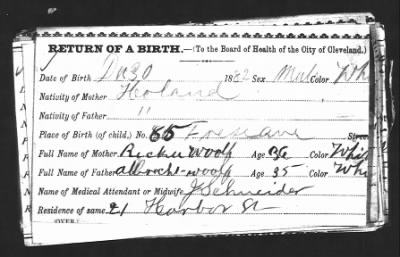 RETURN OF A BIRTH.—(To the Board of Health of the City of Cleveland.)
Date of Birth Dec 30 1882 Sex Male Color Whi
Nativity of Mother Holand
Nativity of Father "
Place of Birth (of child,) No. 85 Street
Full Name of Mother Woolf Age 36 Color Whit
Full Name of Father albrecht-woolf Age 35 Color Whi
Name of Medical Attendant or Midwife J Schneider
Residence of same 21 Harbor St
(OVER.)